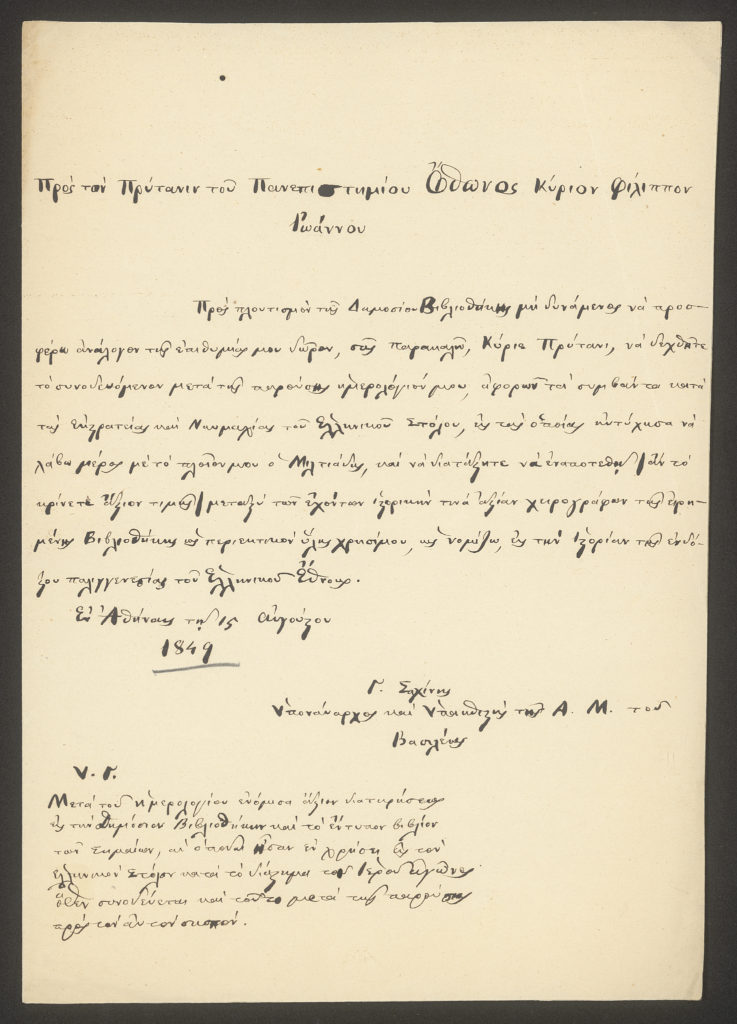 Πρὸς τὸν Πρύτανιν τοῦ Πανεπιστημίου Ὄθωνος Κύριον Φίλιππον
Ἰωάννου
Πρὸς πλουτισμὸν τῆς Δημοσίου Βιβλιοθήκης μὴ δυνάμενος νὰ προσ-
φέρω ἀνάλογον τῆς ἐπιθυμίας μου δῶρον, σᾶς παρακαλῶ, Κύριε Πρύτανι, νὰ δεχθῆτε
τὸ συνοδευόμενον μετὰ τῆς παρούσης ἡμερολόγιόν μου, ἀφορῶν τὰ συμβάντα κατὰ
τὰς Ἐκστρατείας καὶ Ναυμαχίας τοῦ Ἑλληνικοῦ Στόλου, εἰς τὰς ὁποίας ηὐτύχησα νὰ
λάβω μέρος μὲ τὸ πλοῖόν μου ὁ Μιλτιάδης, καὶ νὰ διατάξητε νὰ ἐναποτεθῇ / ἂν τὸ
κρίνετε ἄξιον τιμῆς / μεταξὺ τῶν ἐχόντων ἱστορικήν τινα ἀξίαν χειρογράφων τῆς εἰρη-
μένης Βιβλιοθήκης ὡς περιεκτικὸν ὕλης χρησίμου, ὡς νομίζω, εἰς τὴν ἱστορίαν τῆς ἐνδό-
ξου παλιγγενεσίας τοῦ Ἑλληνικοῦ Ἔθνους.
Ἐν Ἀθήναις τῇ 15 Αὐγούστου
1849
Γ. Σαχίνης
Ὑποναύαρχος καὶ Ὑπασπιστὴς τῆς Α. Μ. τοῦ
Βασιλέως
Υ. Γ.
Μετὰ τοῦ ἡμερολογίου ἐνόμισα ἄξιον διατηρήσεως
εἰς τὴν Δημόσιον Βιβλιοθήκην καὶ τὸ ἔντυπον βιβλίον
τῶν Σημαίων, αἱ ὁποῖαι ἦσαν ἐν χρήσει εἰς τὸν
ἑλληνικὸν Στόλον κατὰ τὸ διάστημα τοῦ Ἱεροῦ ἀγῶνος
ὅθεν συνοδεύεται καὶ τοῦτο μετὰ τῆς παρούσης
πρὸς τὸν αὐτὸν σκοπόν.